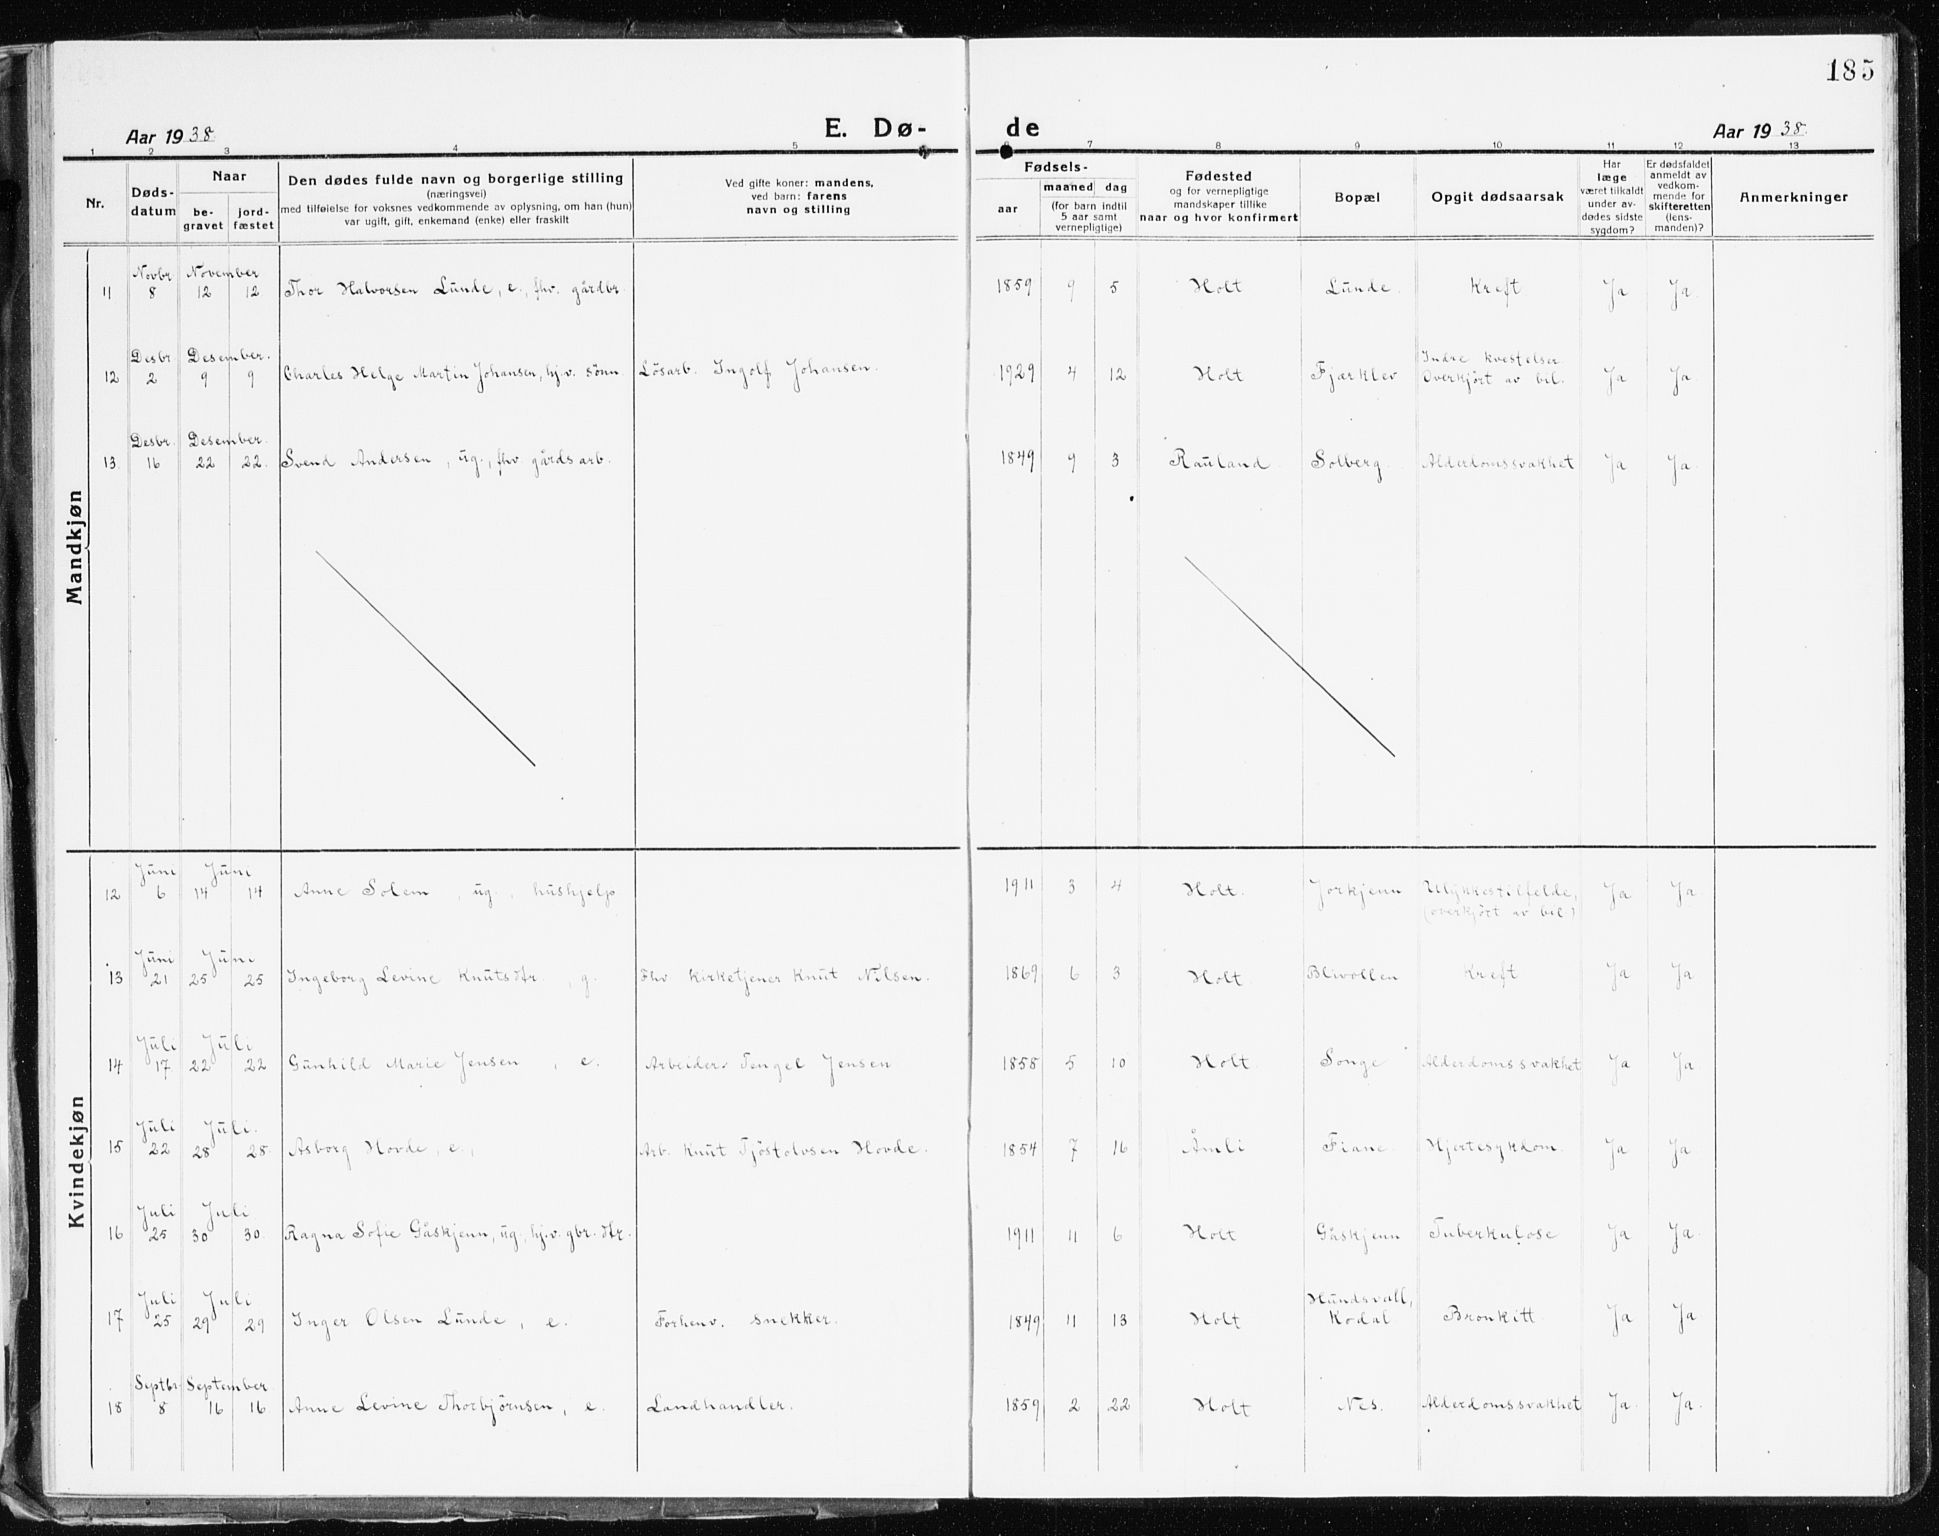 185
Aar 1938. E. Dø- de Aar 1938.
1 2 3 4 5 6 7 8 9 10 11 12 13
Nr. Døds-datum Naar be-gravet jord-fæstet Den dødes fulde navn og borgerlige stilling (næringsvei) med tilføielse for voksnes vedkommende av oplysning, om han (hun) var ugift, gift, enkemand (enke) eller fraskilt Ved gifte koner: mandens, ved barn: farens navn og stilling Fødsels- aar maaned dag (for barn indtil 5 aar samt vernepligtige) Fødested og for vernepligtige mandskaper tillike naar og hvor konfirmert Bopæl Opgit dødsaarsak Har læge været tilkaldt under av-dødes sidste sygdom? Er dødsfaldet anmeldt av vedkom-mende for skifteretten (lens-manden)? Anmerkninger
Mandkjøn
11 Novbr. 8 November 12 12 Thor Halvorsen Lunde, e., fhv. gårdbr. 1859 9 5 Holt Lunde. Kreft Ja Ja.
12 Desbr. 2 Desember. 9 9 Charles Helge Martin Johansen, hj.v. sönn Lösarb. Ingolf Johansen. 1929 4 12 Holt Fjærklev Indre kvestelser Overkjört av bil. Ja Ja.
13. Desbr. 16 Desember. 22 22. Svend Andersen, ug., fhv. gårdsarb. 1849 9 3 Rauland Solberg. Alderdomssvakhet Ja Ja.
Kvindekjøn
12 Juni 6 Juni 14 14 Anne Solem, ug., hushjelp 1911 3 4 Holt. Jorkjenn Ulykkestilfelde, (overkjört av bil) Ja Ja.
13 Juni 21 Juni 25 25 Ingeborg Levine Knutsdtr., g. Fhv Kirketjener Knut Nilsen. 1869 6 3 Holt. Blivollen Kreft Ja Ja
14 Juli 17 Juli 22 22 Gunhild Marie Jensen, e. Arbeider Tengel Jensen 1858 5 10 Holt. Songe Alderdomssvakhet Ja Ja.
15 Juli 22 Juli. 28 28. Asborg Hovde, e., Arb. Knut Tjöstolvsen Hovde. 1854 7 16 Åmli Fiane. Hjertesykdom. Ja Ja
16 Juli 25 Juli 30 30. Ragna Sofie Gåskjenn, ug., hj.v. gbr. dtr. 1911 11 6 Holt Gåskjenn Tuberkulose Ja Ja.
17 Juli 25 Juli 29 29 Inger Olsen Lunde, e. Forhenv. snekker. 1849 11 13 Holt Hundsvall, Kodal Bronkitt. Ja Ja
18 Septbr. 8 September. 16 16 Anne Levine Thorbjörnsen, e. Landhandler. 1859 2 22 Holt Nes. Alderdomssvakhet Ja. Ja.